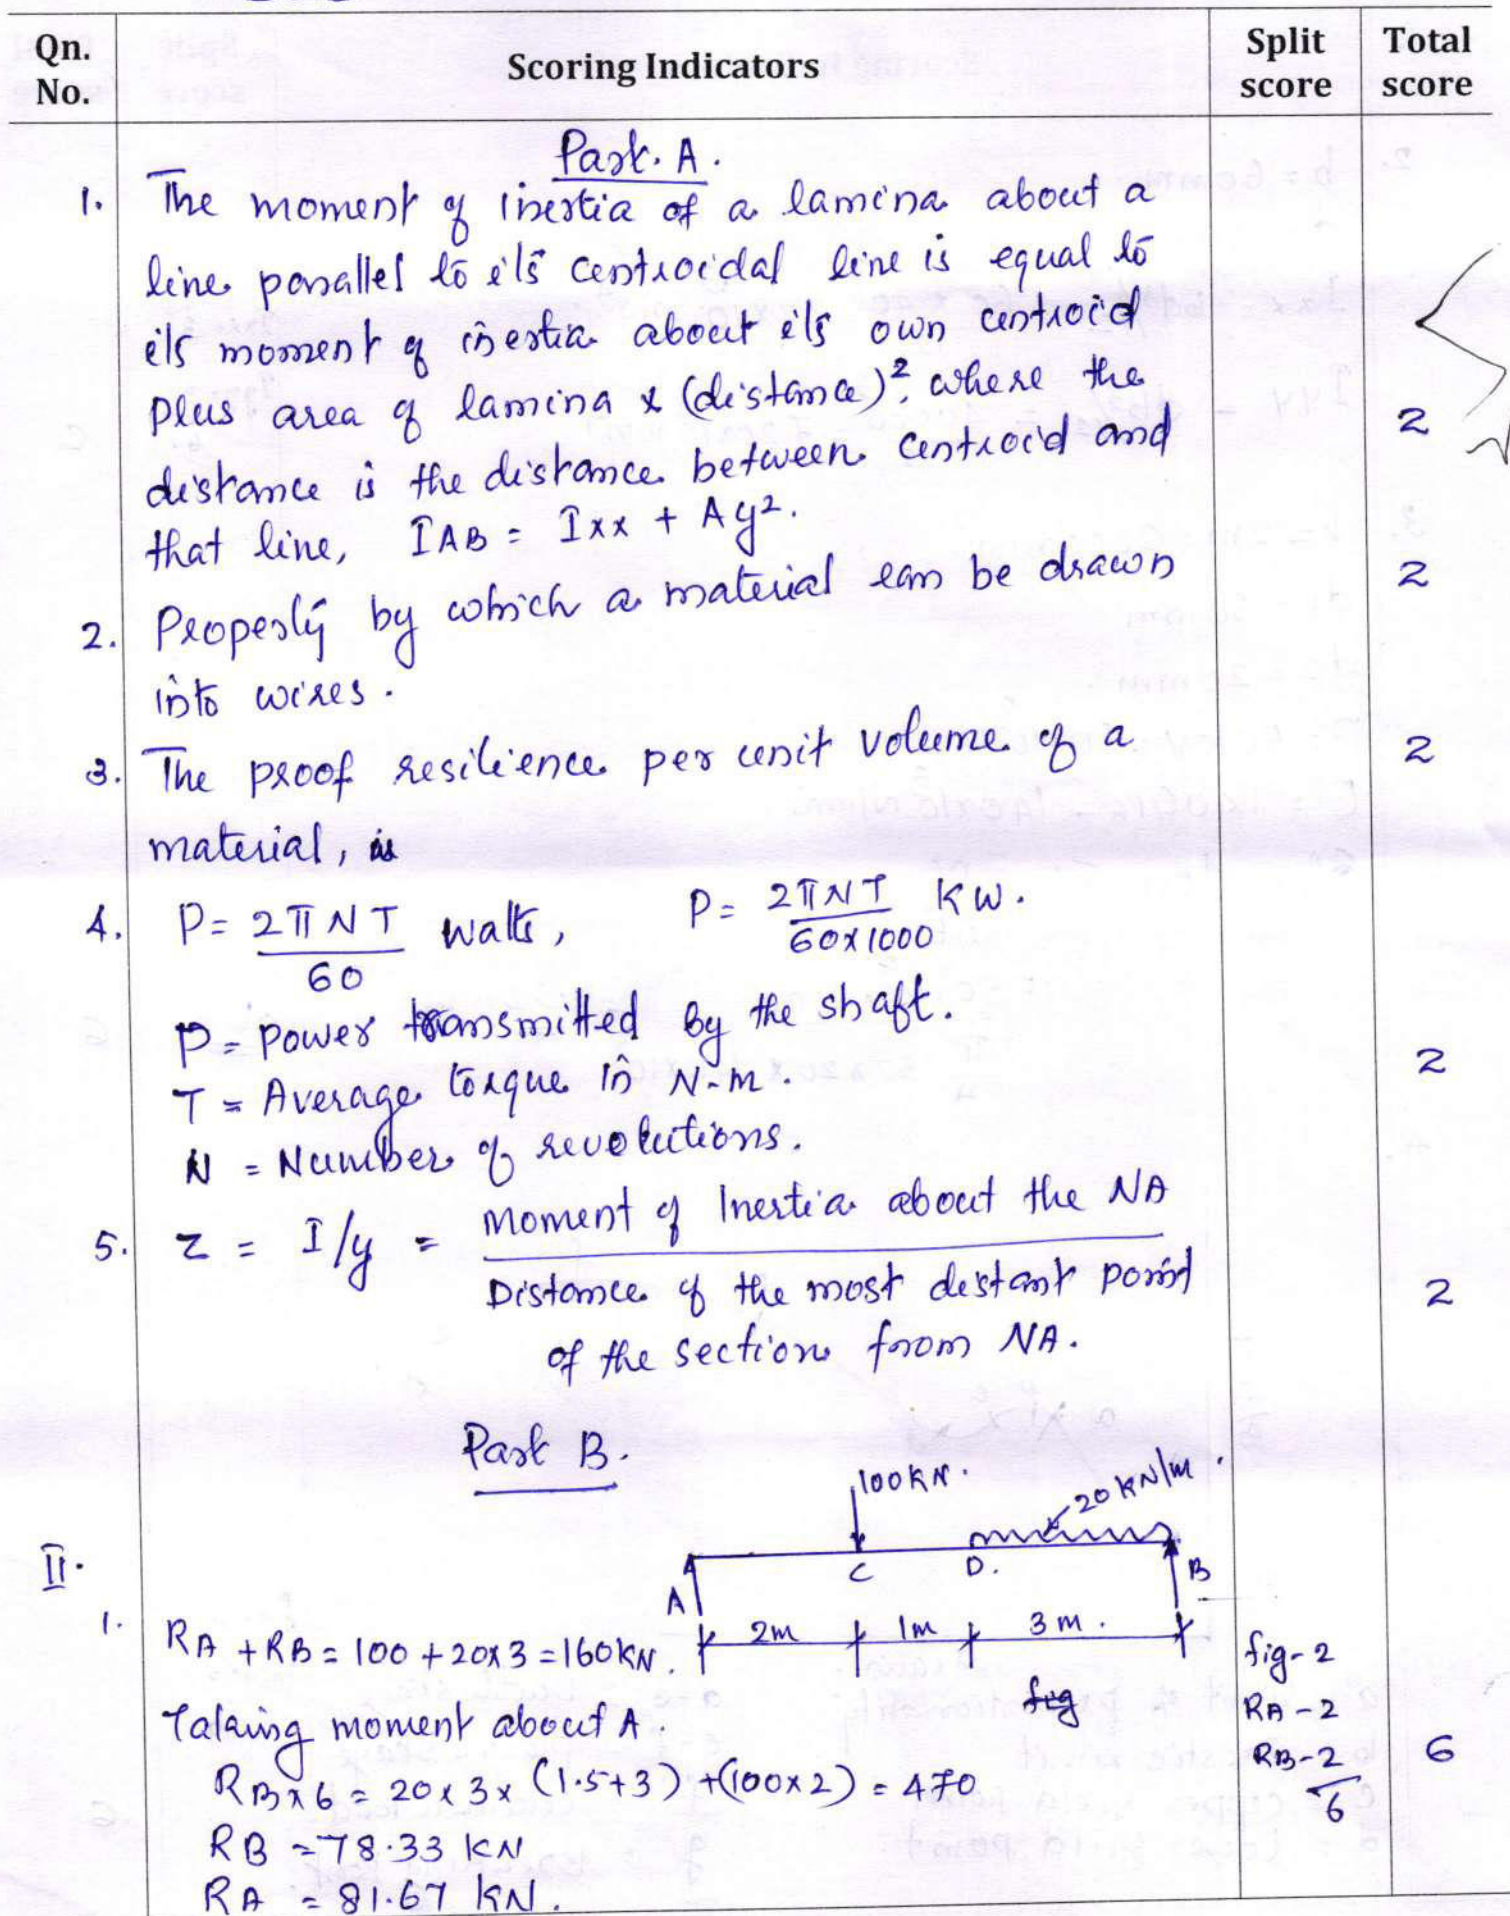 Qn. No. Scoring Indicators Split score Total score
Part. A.
1. The moment of inertia of a lamina about a
line parallel to its centroidal line is equal to
its moment of inertia about its own centroid
plus area of lamina x (distance)², where the
distance is the distance between centroid and 2
that line, IAB = Ixx + Ay².
2. Property by which a material can be drawn 2
into wires.
3. The proof resilience per unit volume of a 2
material, is
4. P = 2πNT/60 watts, P = 2πNT/60x1000 KW.
P = Power transmitted by the shaft.
T = Average torque in N-m. 2
N = Number of revolutions.
5. Z = I/y = Moment of Inertia about the NA
Distance of the most distant point 2
of the section from NA.
Part B.
100KN.
20 KN/m.
II.
A C D. B
1. RA + RB = 100 + 20x3 = 160KN. 2m 1m 3m. fig-2
Taking moment about A. fig RA-2
RB x 6 = 20 x 3 x (1.5+3) + (100x2) = 470 RB-2 6
6
RB = 78.33 KN
RA = 81.67 KN.